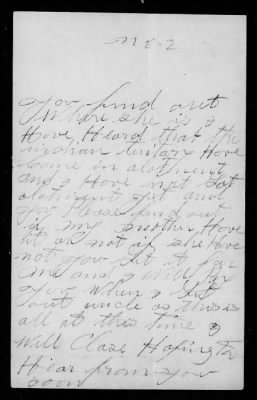 No 2
you find out
Where she is I
Have Heard that the
indian teritary Have
Come in alotment
and I Have not Got
alotment yet and
you Please find out
if my mother Have
it or not if she Have
not you Get it for
me and I will
you When I Get
out uncle as this is
all at this time I
Will Close Hoping to
Hear from you
soon